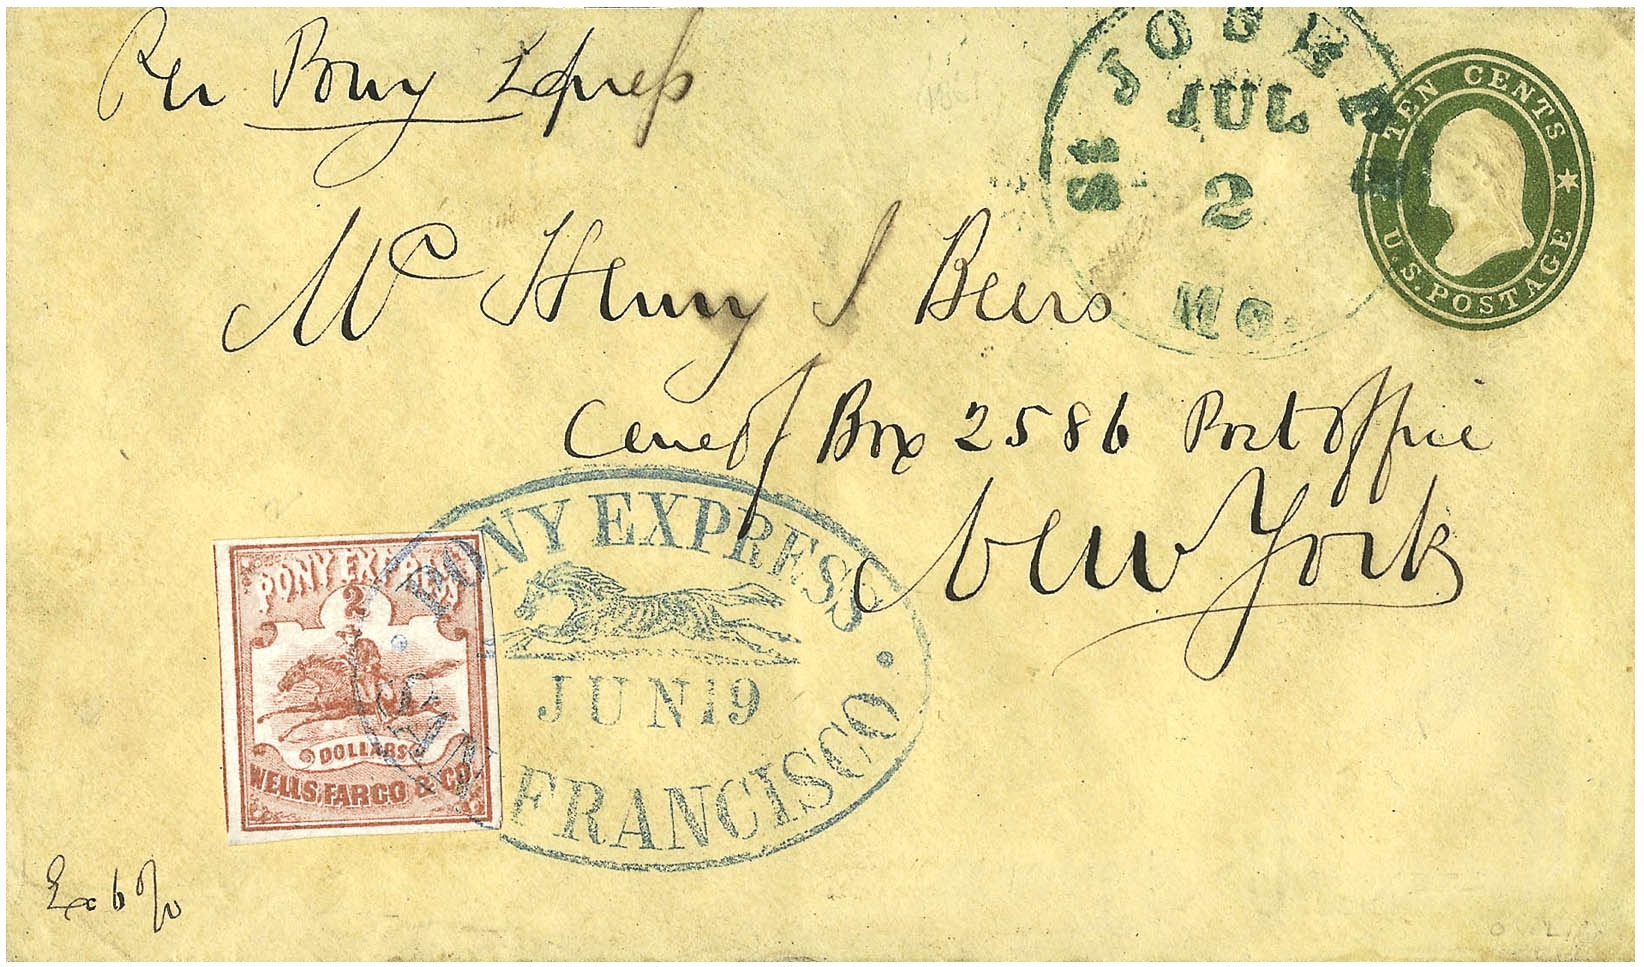 Per Pony Express
St JOSEPH
JUL
2
MO.
TEN CENTS
U.S. POSTAGE
Mr Henry I Beers
Care of Box 2586 Post Office
New York
PONY EXPRESS
JUN 19
SAN FRANCISCO
PONY EXPRESS
2
DOLLARS
WELLS, FARGO & CO.